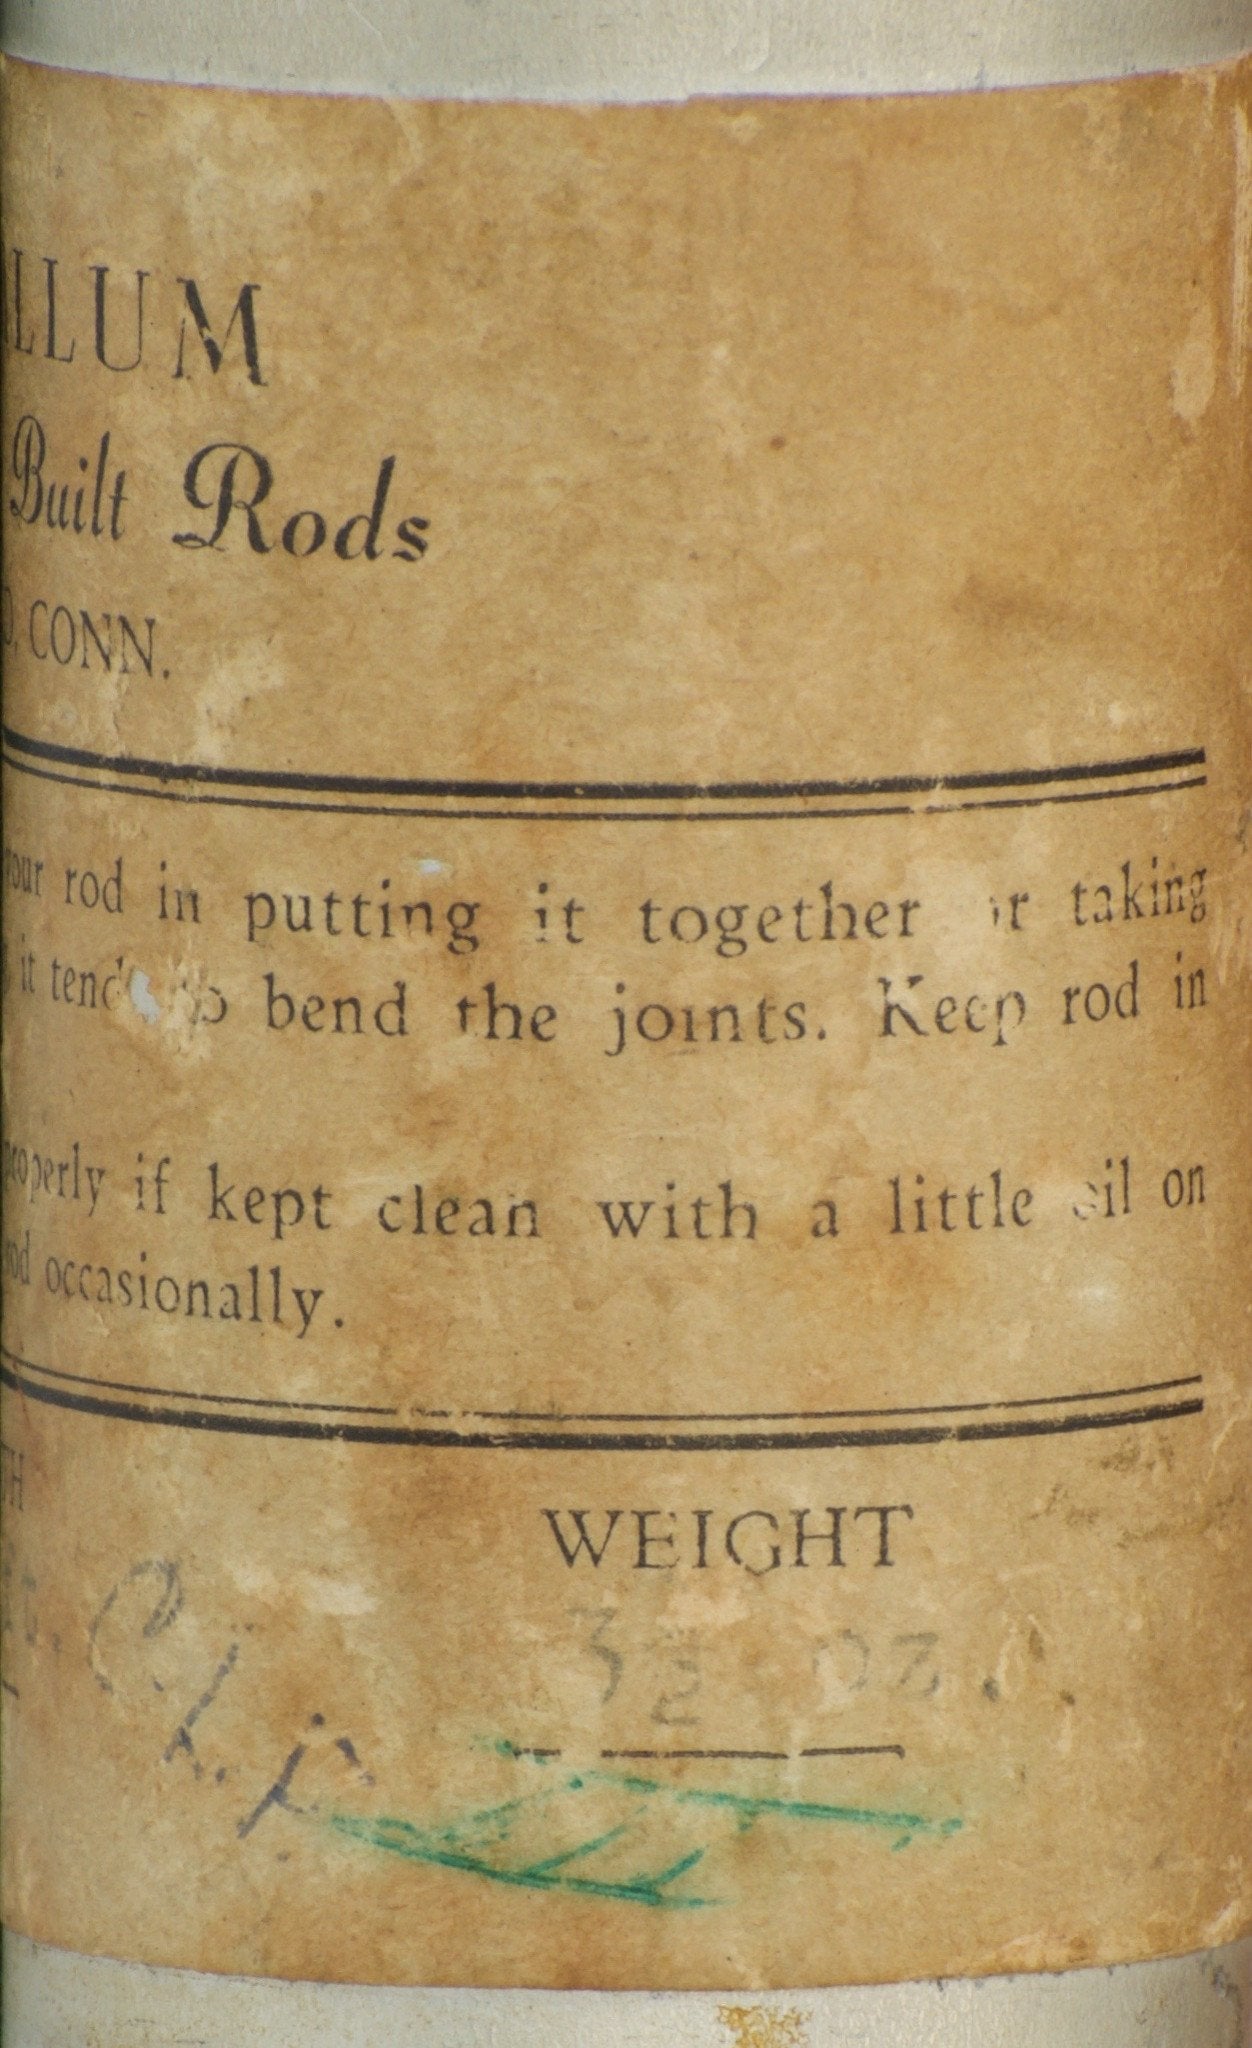 LLUM
Built Rods
CONN.
your rod in putting it together or taking
it tends to bend the joints. Keep rod in
properly if kept clean with a little oil on
rod occasionally.
WEIGHT
3½ oz.